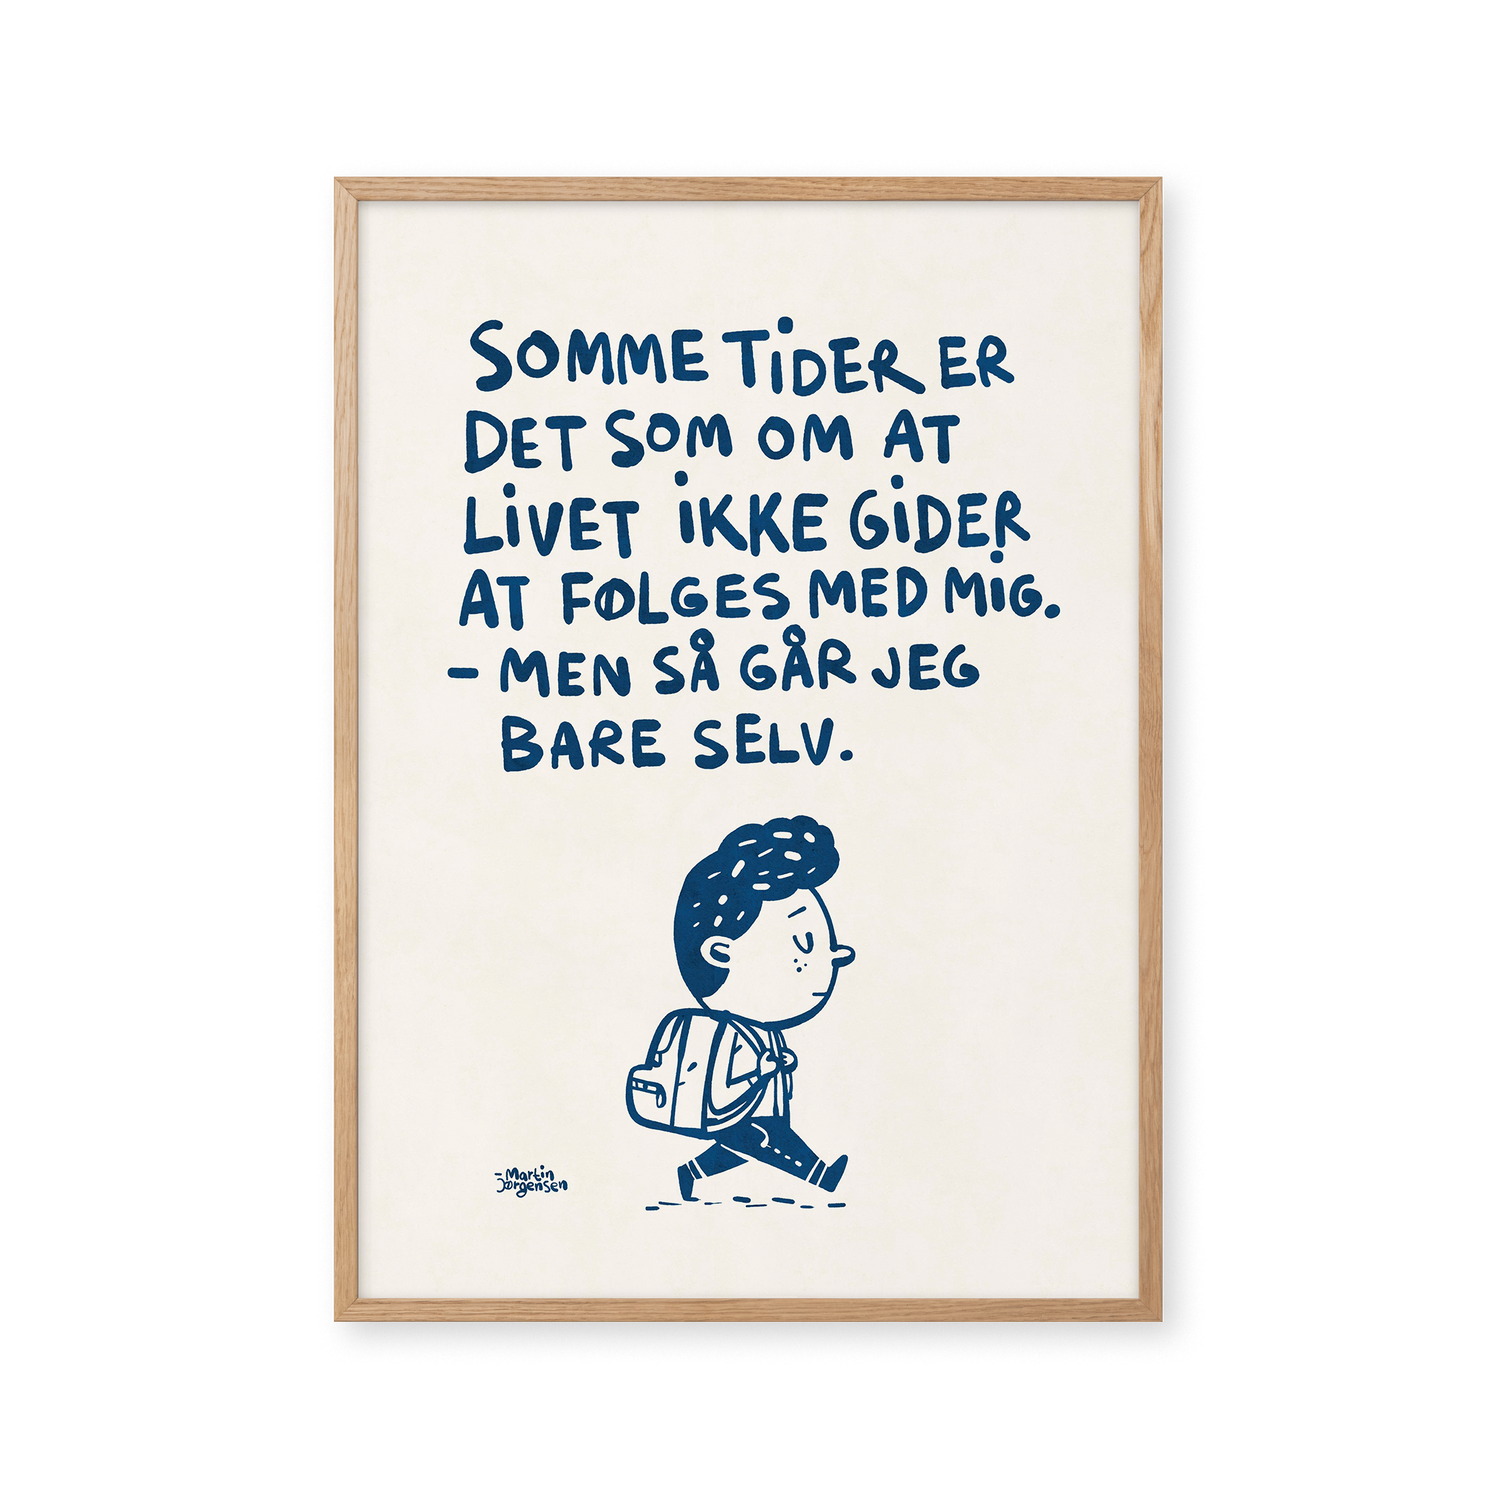 SOMME TiDER ER
DET SOM OM AT
LiVET iKKE GiDER
AT FØLGES MED MiG.
- MEN SÅ GÅR JEG
BARE SELV.
- Martin
Jørgensen